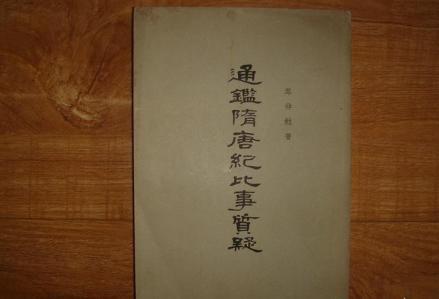 岑仲勉著
通鑑隋唐紀比事質疑